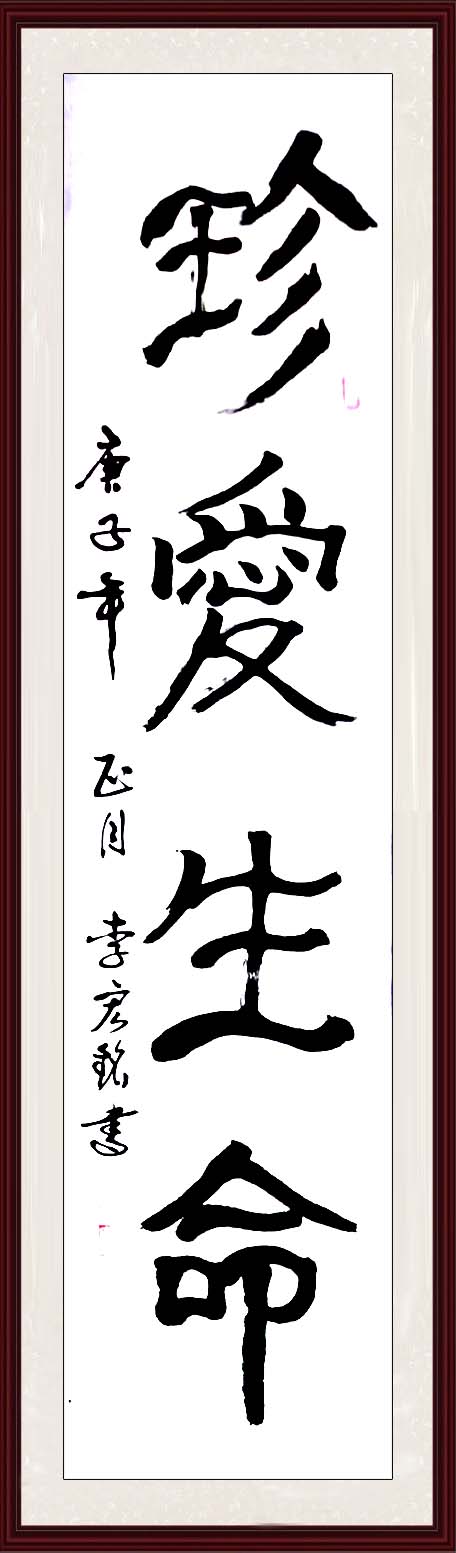 珍愛生命
庚子年 正月 李宏銘書